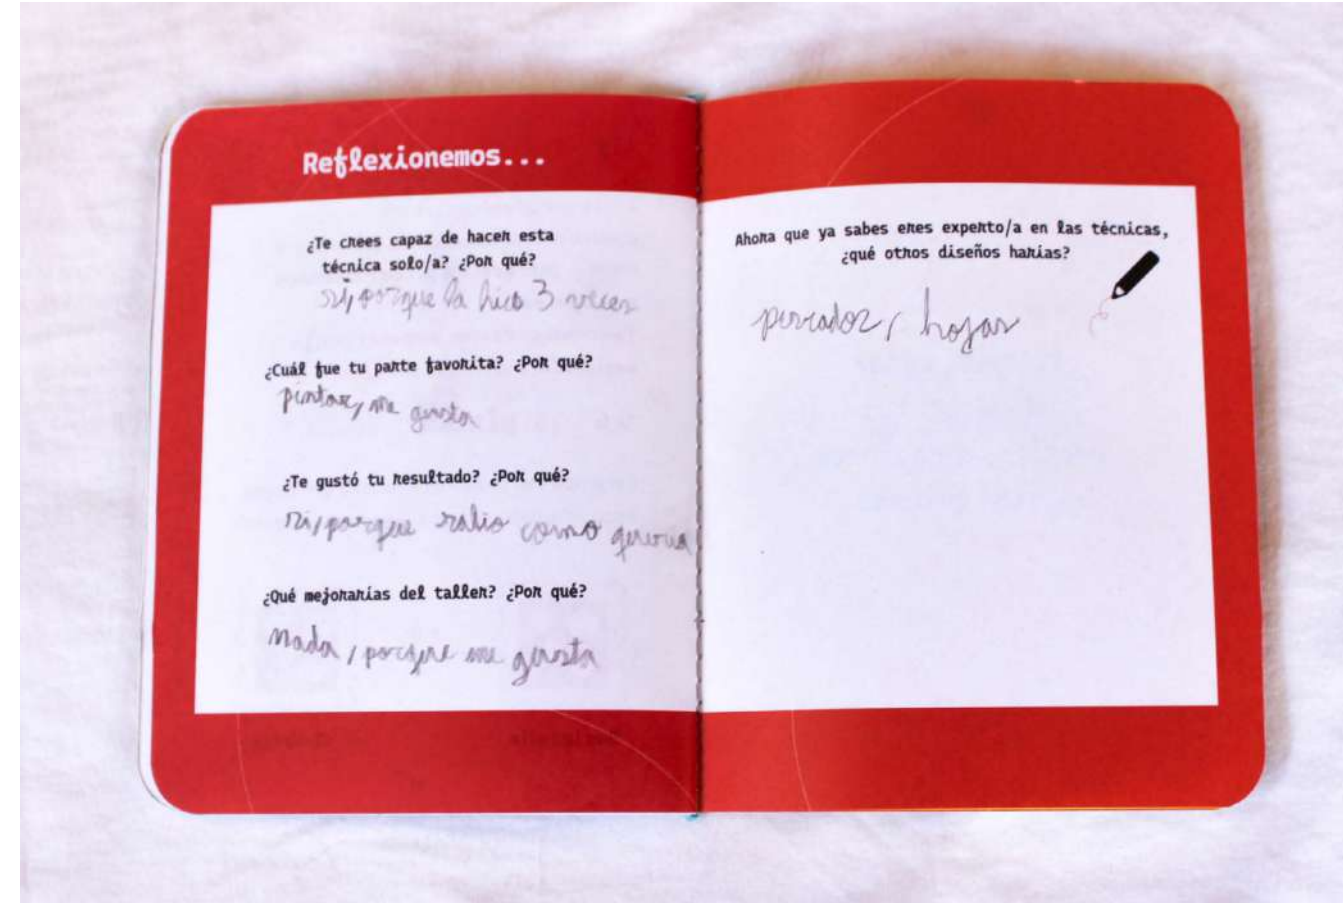 Reflexionemos...
¿Te crees capaz de hacer esta
técnica solo/a? ¿Por qué?
si, porque la hico 3 veces
¿Cuál fue tu parte favorita? ¿Por qué?
pintar, me gusta
¿Te gustó tu resultado? ¿Por qué?
si, porque salio como queria
¿Qué mejorarías del taller? ¿Por qué?
Nada, porque me gusta
Ahora que ya sabes eres experto/a en las técnicas,
¿qué otros diseños harías?
hojas